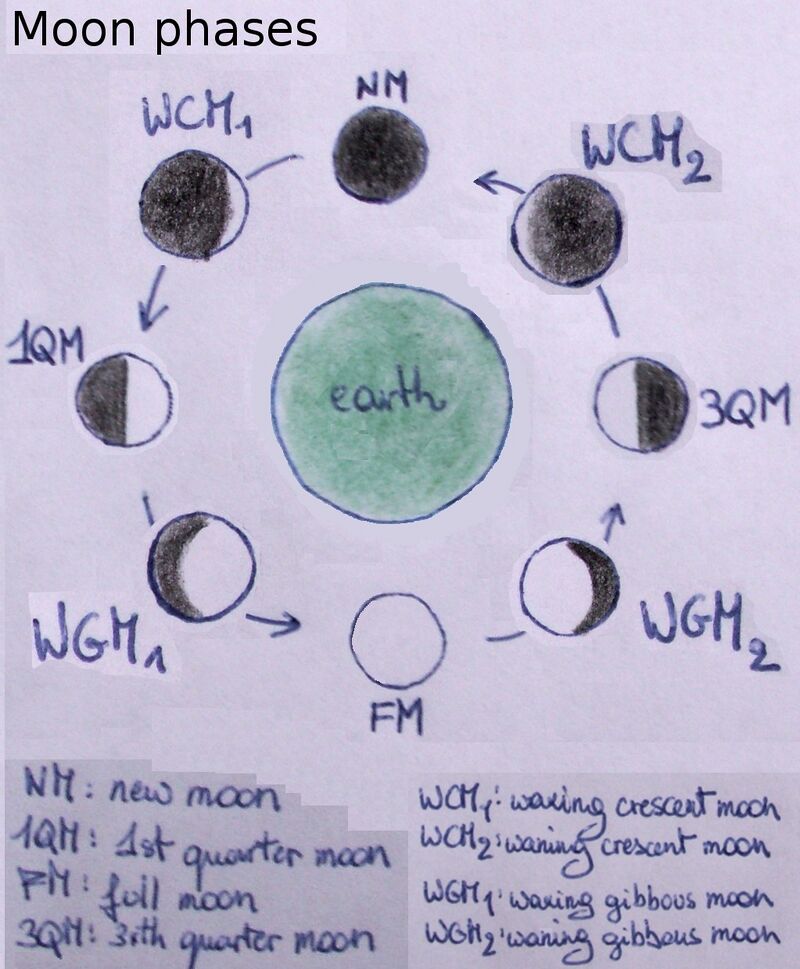 Moon phases
NM
WCM1
WCM2
1QM
earth
3QM
WGM1
WGM2
FM
NM: new moon
1QM: 1st quarter moon
FM: foll moon
3QM: 3rth quarter moon
WCM1: waxing crescent moon
WCM2: waning crescent moon
WGM1: waxing gibbous moon
WGM2: waning gibbous moon